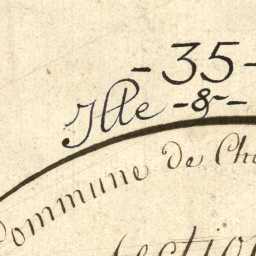 -35-
Ille -&-
Commune de Ch
section